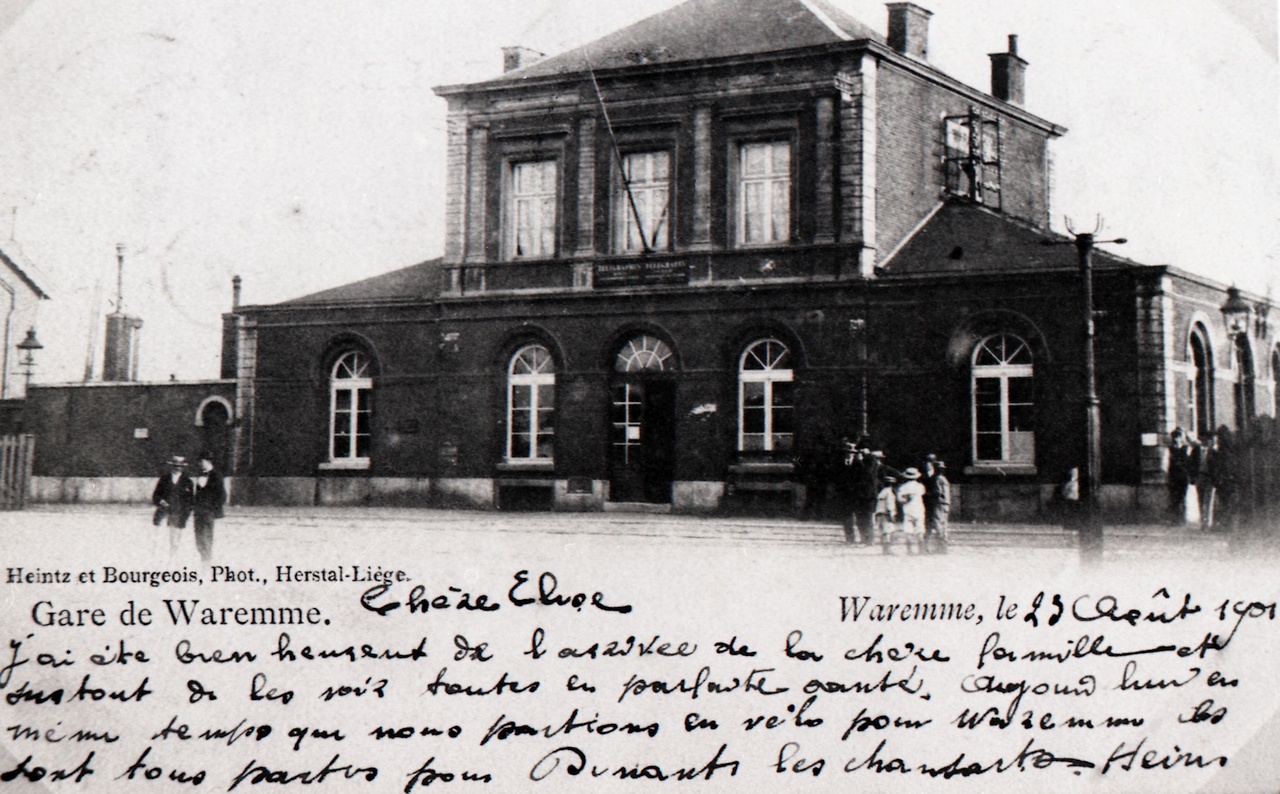 TELEGRAPHES TELEGRAFEN
Heintz et Bourgeois, Phot., Herstal-Liège.
Gare de Waremme.
Chère
Waremme, le 23 Août 1901
J'ai été bien heureux de l'arrivée de la chère famille et
surtout de les voir toutes en parfaite santé. Aujourd'hui en
même temps que nous partions en vélo pour Waremme ils
sont tous partis pour Dinant les